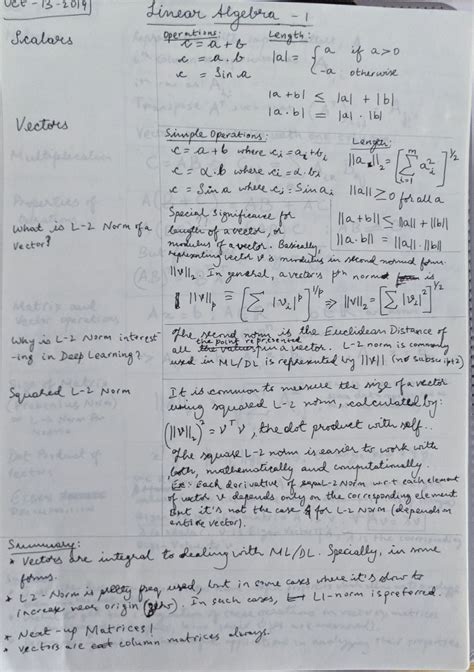 Oct - 13 - 2019
Linear Algebra - 1
Scalars
Operations:
c = a + b
c = a . b
c = Sin a
Length:
|a| = { a if a > 0
-a otherwise
|a + b| ≤ |a| + |b|
|a . b| = |a| . |b|
Vectors
Simple Operations:
c = a + b where ci = ai + bi
c = α . b where ci = α . bi
c = Sin a where ci = Sin ai
Length:
||a||2 = [Σ(i=1 to m) ai²]^1/2
||a|| ≥ 0 for all a
||a + b|| ≤ ||a|| + ||b||
||a . b|| = ||a|| . ||b||
What is L-2 Norm of a
Vector?
Special significance for
length of a vector, or
modulus of a vector. Basically,
representing vector v is modulus in second normed form.
||v||2. In general, a vector's pth norm is
||v||p ≅ [Σ |vi|^p]^1/p ⇒ ||v||2 = [Σ |vi|²]^1/2
Why is L-2 Norm interest-
ing in Deep Learning?
The second norm is the Euclidean Distance of
all the point represented in a vector. L-2 norm is commonly
used in ML/DL is represented by ||v|| (no subscript 2)
Squared L-2 Norm
It is common to measure the size of a vector
using squared L-2 norm, calculated by:
(||v||2)² = v^T v, the dot product with self.
The square L-2 norm is easier to work with
both, mathematically and computationally.
Ex: Each derivative of squared L-2 Norm w.r.t each element
of vector v depends only on the corresponding element
But it's not the case for L-2 Norm (depends on
entire vector).
Summary:
* Vectors are integral to dealing with ML/DL. Specially, in some
forms.
* L2-Norm is pretty freq used, but in some cases where it's slow to
increase near origin (zero). In such cases, L1-norm is preferred.
* Next-up Matrices!
* Vectors are column matrices always.